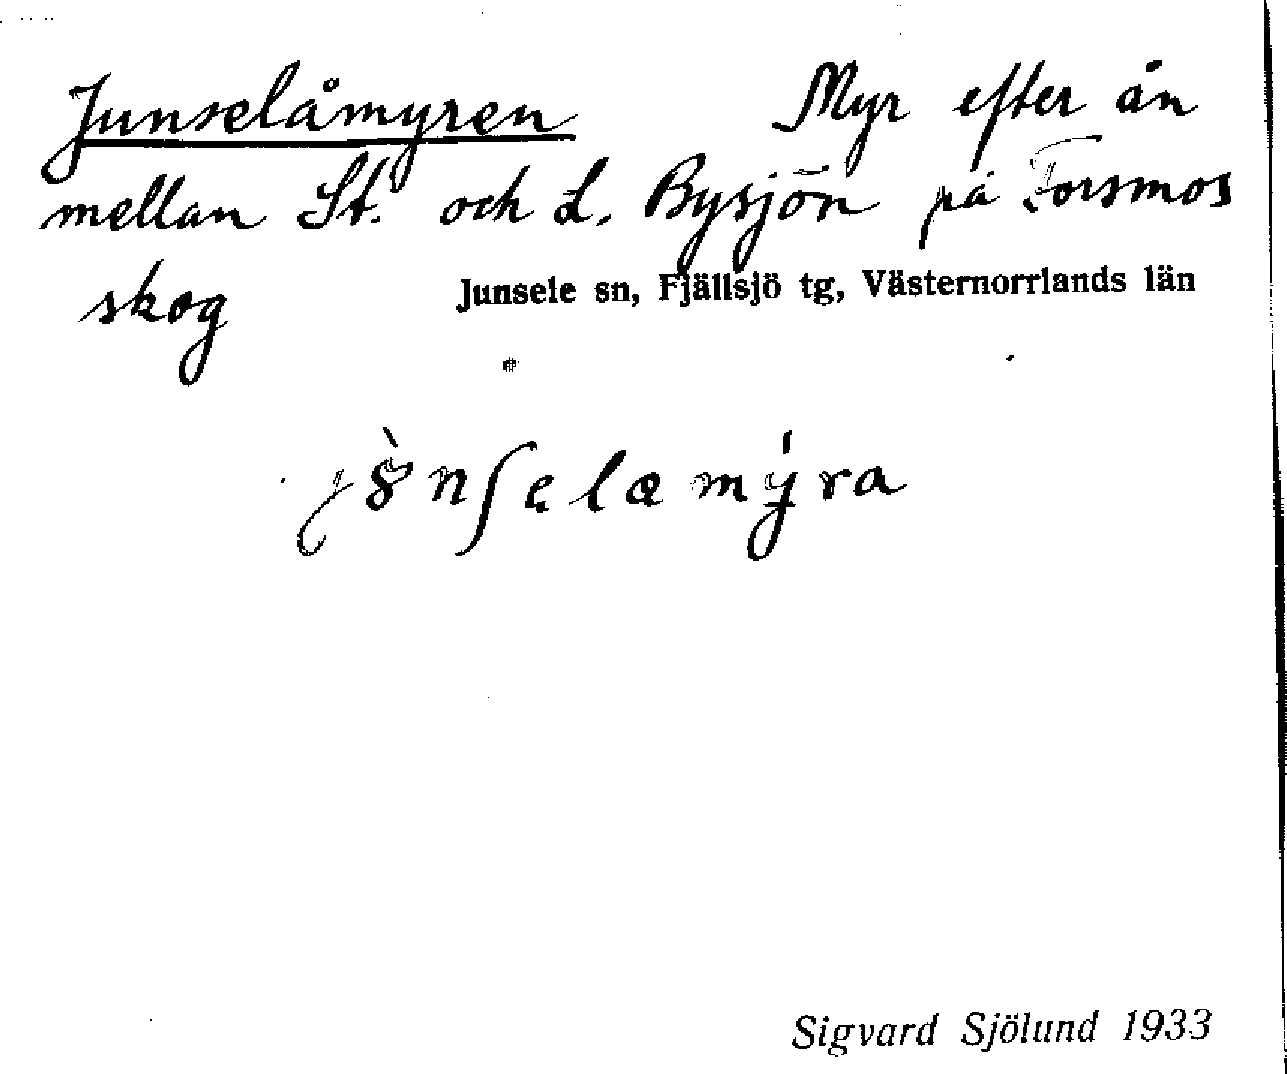 Junselåmyren Myr efter ån
mellan St. och L. Bysjön på Forsmos
skog
Junsele sn, Fjällsjö tg, Västernorrlands län
Sigvard Sjölund 1933